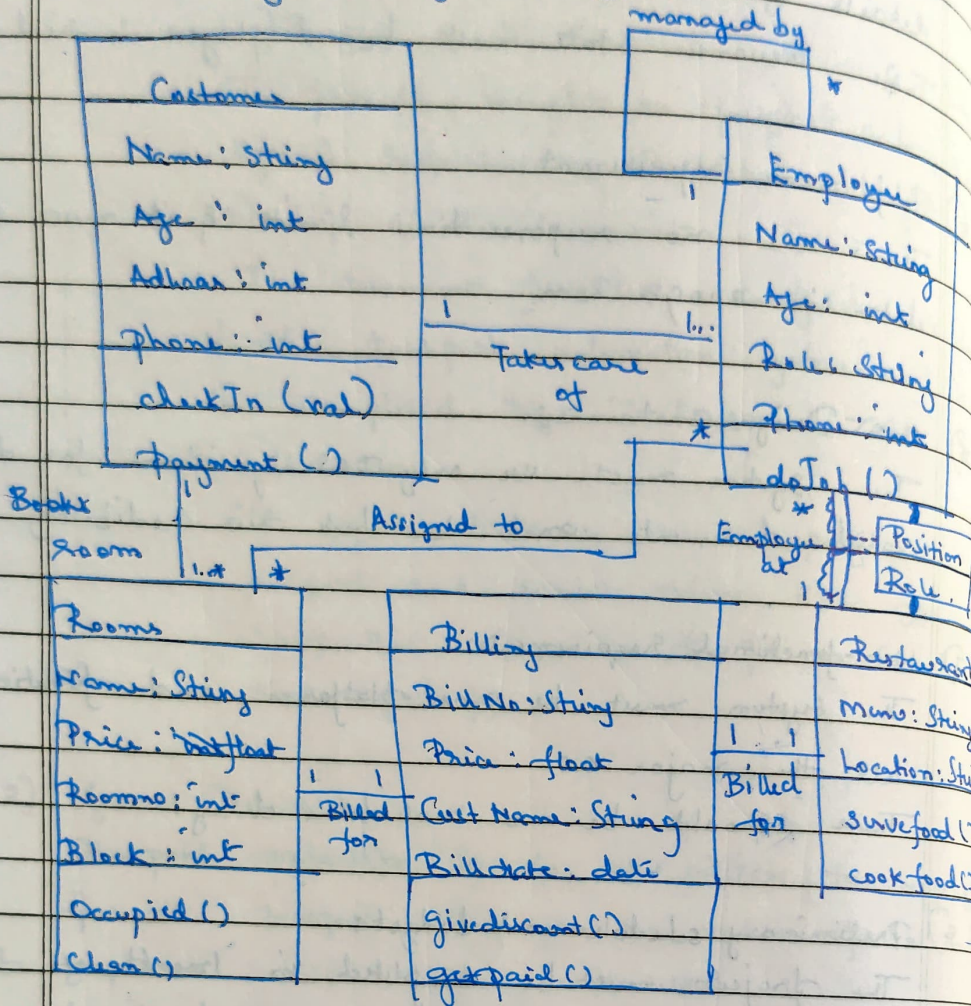 managed by
*
1
Customer
Name : String
Age : int
Adhaar : int
Phone : int
checkIn (val)
payment ()
1
1...
Takes care
of
Employee
Name : String
Age : int
Role : String
Phone : int
doJob ()
*
Employee
at
1
Position
Role.
Books
room
1
1..*
Assigned to
*
*
Rooms
Name : String
Price : float
Roomno : int
Block : int
Occupied ()
Clean ()
1 1
Billed
for
Billing
Bill No : String
Price : float
Cust Name : String
Billdate : date
givediscount ()
getpaid ()
1 1
Billed
for
Restaurant
Menu : String
Location : St
servefood (
cook food (